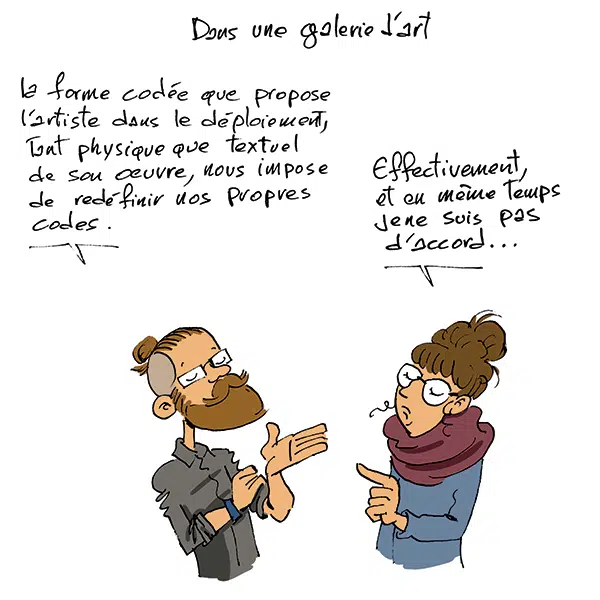 Dans une galerie d'art
la forme codée que propose
l'artiste dans le déploiement,
tant physique que textuel
de son œuvre, nous impose
de redéfinir nos propres
codes.
Effectivement,
et en même temps
je ne suis pas
d'accord...